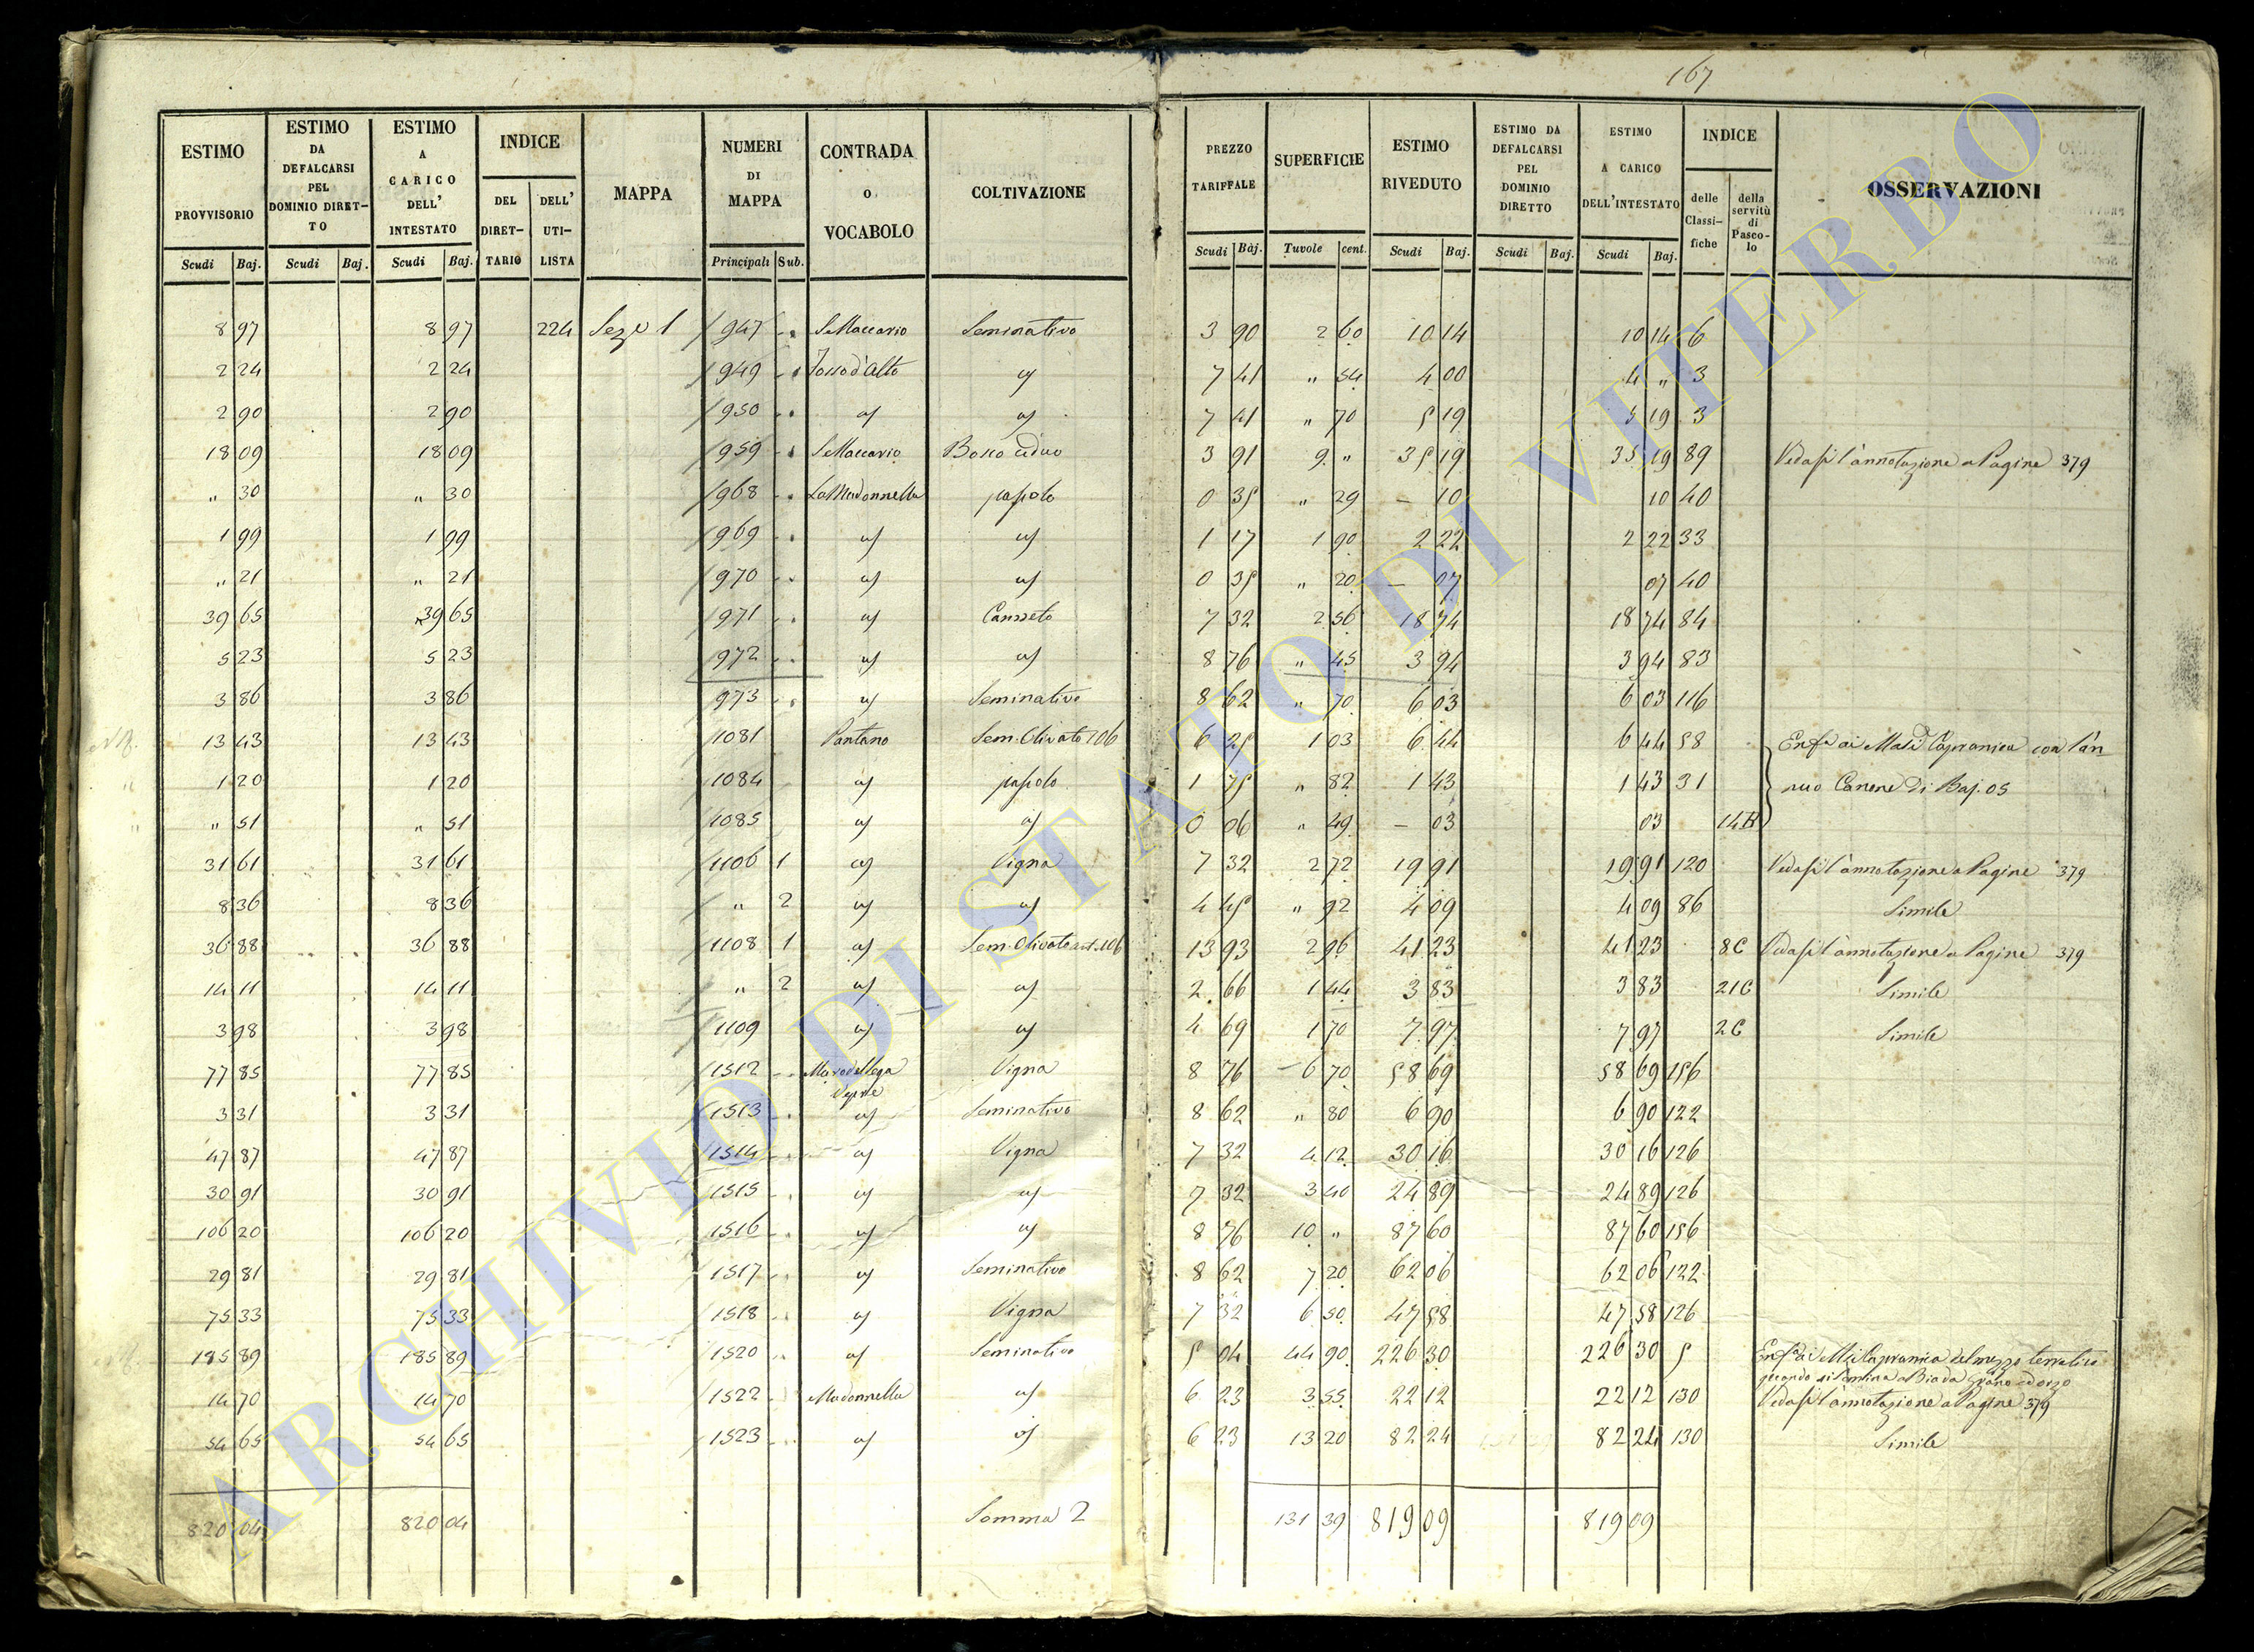 167
ESTIMO PROVVISORIO Scudi Baj.
ESTIMO DA DEFALCARSI PEL DOMINIO DIRET-TO Scudi Baj.
ESTIMO A CARICO DELL' INTESTATO Scudi Baj.
INDICE DEL DIRET-TARIO DELL' UTI-LISTA
MAPPA
NUMERI DI MAPPA Principali Sub.
CONTRADA O VOCABOLO
COLTIVAZIONE
PREZZO TARIFFALE Scudi Baj.
SUPERFICIE Tavole cent.
ESTIMO RIVEDUTO Scudi Baj.
ESTIMO DA DEFALCARSI PEL DOMINIO DIRETTO Scudi Baj.
ESTIMO A CARICO DELL'INTESTATO Scudi Baj.
INDICE delle Classi-fiche della servitù di Pasco-lo
OSSERVAZIONI
8 97 8 97 224 Sez. 1 947 S. Maccario Seminativo 3 90 2 60 10 14 10 14 6
2 24 2 24 949 Fosso d'Alto " 7 41 " 54 4 00 4 " 3
2 90 2 90 950 " " 7 41 " 70 5 19 5 19 3
18 09 18 09 959 S. Maccario Bosco ceduo 3 91 9 " 35 19 35 19 89 Vedasi l'annotazione a Pagine 379
" 30 " 30 968 La Madonnella pascolo 0 35 " 29 – 10 10 40
1 99 1 99 969 " " 1 17 1 90 2 22 2 22 33
" 21 " 21 970 " " 0 35 " 20 – 07 07 40
39 65 39 65 971 " Canneto 7 32 2 56 18 74 18 74 84
5 23 5 23 972 " " 8 76 " 45 3 94 3 94 83
3 86 3 86 973 " Seminativo 8 62 " 70 6 03 6 03 116
13 43 13 43 1081 Pantano Sem. Olivato 106 6 25 1 03 6 44 6 44 58 Enf. ai Capranica con l'an-
1 20 1 20 1084 " pascolo 1 75 " 82 1 43 1 43 31 nuo Canone di Baj. 05
" 51 " 51 1085 " " 0 06 " 49 – 03 03 14 B
31 61 31 61 1106 1 " Vigna 7 32 2 72 19 91 19 91 120 Vedasi l'annotazione a Pagine 379
8 36 8 36 " 2 " " 4 45 " 92 4 09 4 09 86 Simile
36 88 36 88 1108 1 " Sem. Olivato 106 13 93 2 96 41 23 41 23 8 C Vedasi l'annotazione a Pagine 379
14 11 14 11 " 2 " " 2 66 1 44 3 83 3 83 21 C Simile
3 98 3 98 1109 " " 4 69 1 70 7 97 7 97 2 C Simile
77 85 77 85 1512 Vigna 8 76 6 70 58 69 58 69 156
3 31 3 31 1513 " Seminativo 8 62 " 80 6 90 6 90 122
47 87 47 87 1514 " Vigna 7 32 4 12 30 16 30 16 126
30 91 30 91 1515 " " 7 32 3 40 24 89 24 89 126
106 20 106 20 1516 " " 8 76 10 " 87 60 87 60 156
29 81 29 81 1517 " Seminativo 8 62 7 20 62 06 62 06 122
75 33 75 33 1518 " Vigna 7 32 6 50 47 58 47 58 126
185 89 185 89 1520 " Seminativo 5 04 44 90 226 30 226 30 5 Enf. ai Capranica del mezzo terratico
quando si semina a Biada grano ed orzo
14 70 14 70 1522 Madonnella " 6 23 3 55 22 12 22 12 130 Vedasi l'annotazione a Pagine 379
54 65 54 65 1523 " " 6 23 13 20 82 24 82 24 130 Simile
820 04 820 04 Somma 2 131 39 819 09 819 09
ARCHIVIO DI STATO DI VITERBO